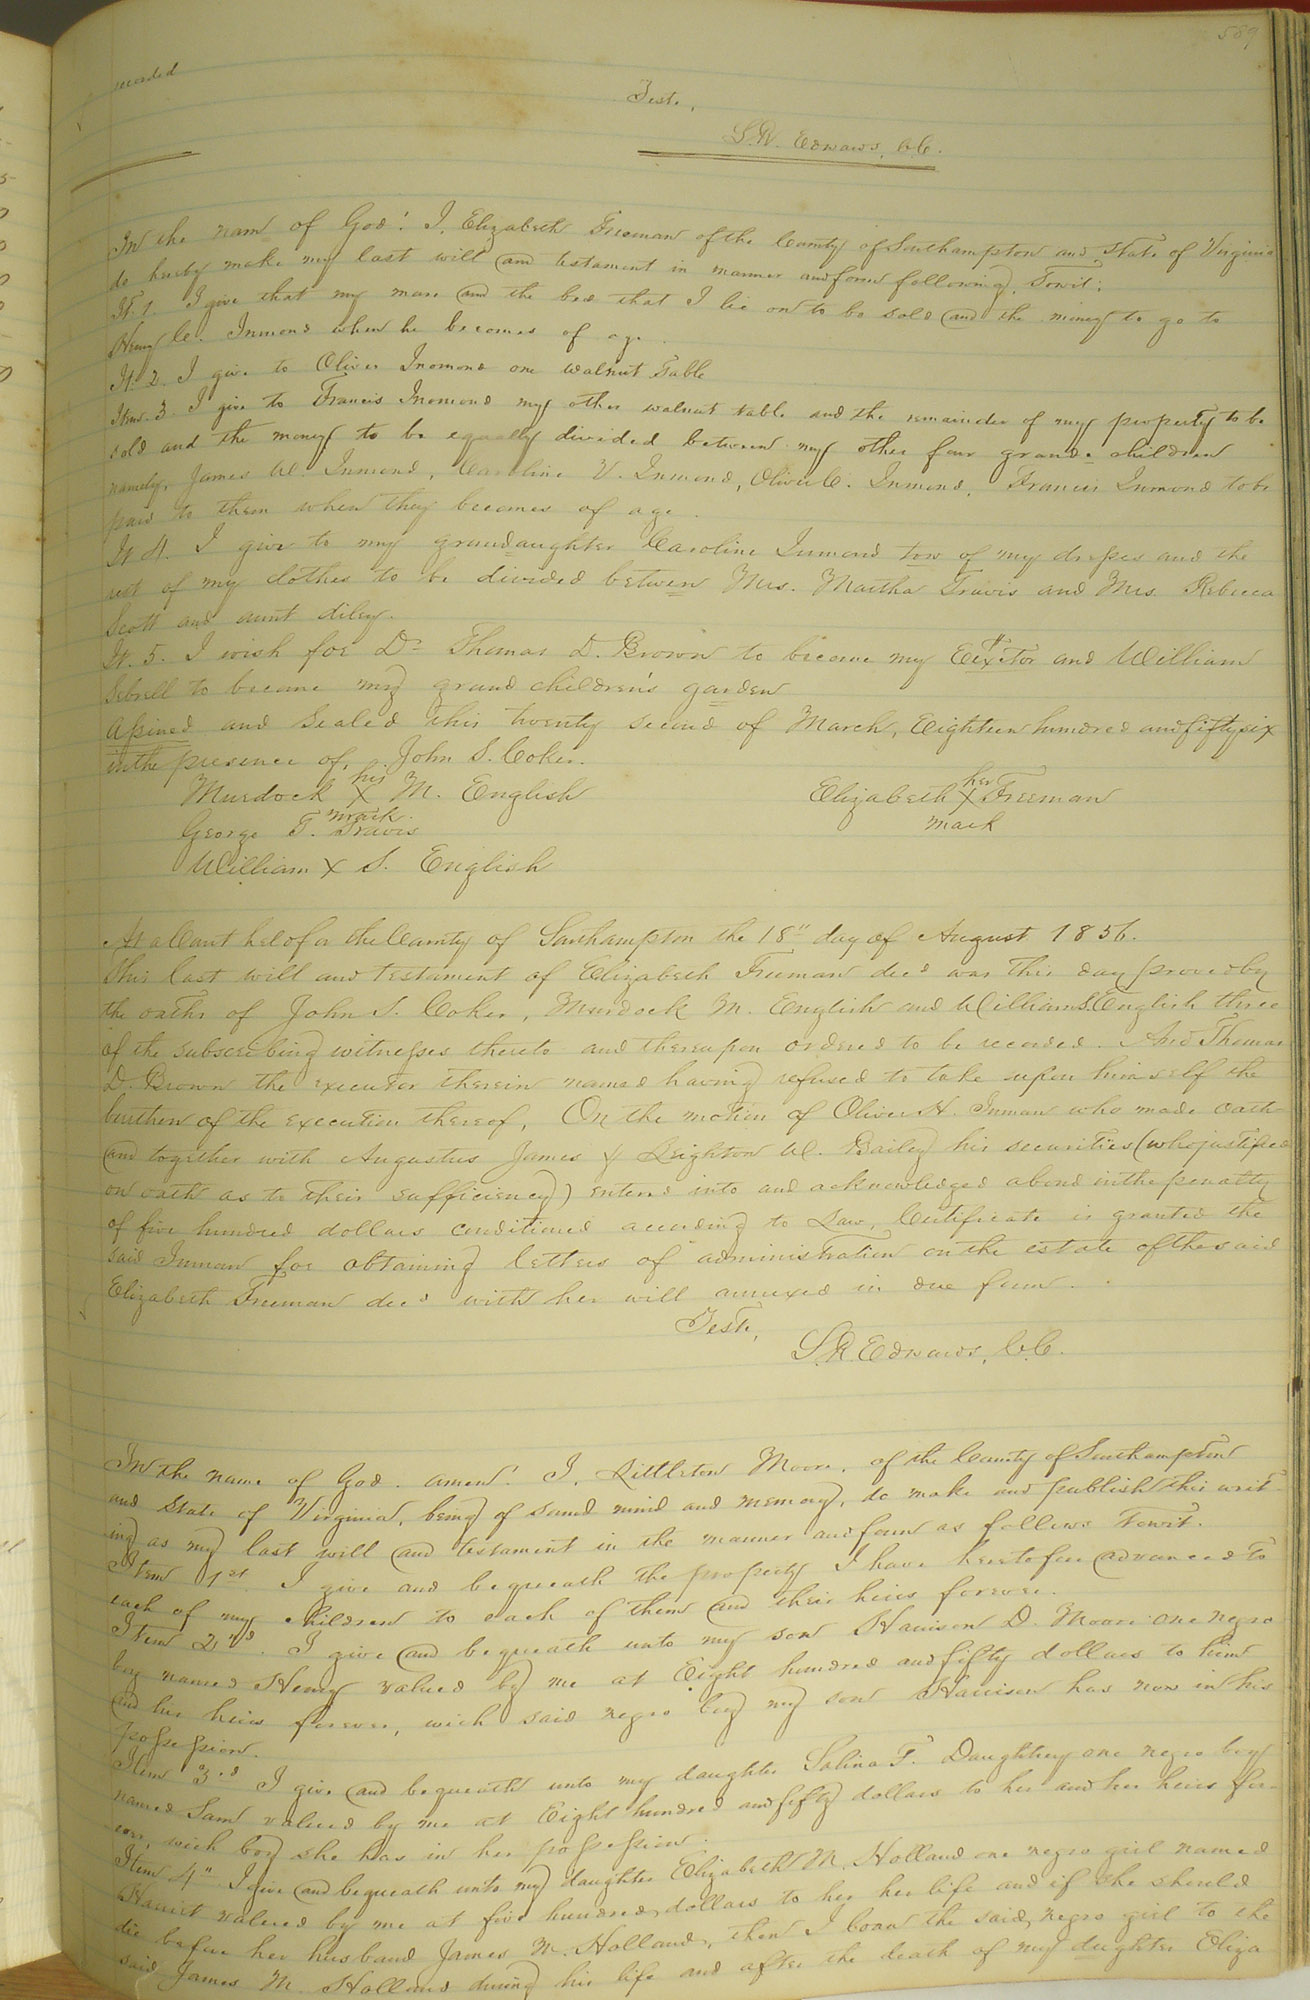 589
recorded
Teste,
L.R. Edwards, C.C.
In the nam of God! I, Elizabeth Freeman of the County of Southampton and State of Virginia
do hereby make my last will and testament in manner and form following, Towit:
It. 1. I give that my mare and the bed that I lie on to be sold and the money to go to
Henry C. Inmond when he becomes of age.
It. 2. I give to Oliver Inmond one walnut Table
Item. 3. I give to Francis Inmond my other walnut table and the remainder of my property to be
sold and the money to be equally divided between my other four grand-children
namely, James W. Inmond, Caroline V. Inmond, Oliver C. Inmond, Francis Inmond to be
paid to them when they becomes of age.
It 4. I give to my grandaughter Caroline Inmond tow of my dresses and the
rest of my clothes to be divided betwen Mrs. Martha Travis and Mrs. Rebecca
Scott and aunt diley.
It. 5. I wish for Dr Thomas D. Brown to become my and William
Sebrell to became my grand children's garden
Assined and Sealed this twenty second of March, Eighteen hundred and fifty six
in the presence of, John S. Coker.
Murdock his X mark M. English
Elizabeth her X mark Freeman
George T. Travis
William X S. English
At a Court held for the County of Southampton the 18" day of August 1856.
This last will and testament of Elizabeth Freeman decd was this day proved by
the oaths of John S. Coker, Murdock M. English and William S. English three
of the subscribing witnesses thereto and thereupon ordered to be recorded. And Thomas
D. Brown the executor therein named having refused to take upon himself the
burthen of the execution thereof, On the motion of Oliver H. Inman who made oath
and together with Augustus James & Leighton W. Bailey his securities (who justified
on oath as to their sufficiency) entered into and acknowledged a bond in the penalty
of five hundred dollars conditioned according to Law, Certificate is granted the
said Inman for obtaining letters of administration on the estate of the said
Elizabeth Freeman decd with her will annexed in due form.
Teste,
L.R. Edwards, C.C.
In the name of God. amen! I, Littleton Moore, of the County of Southampton
and State of Virginia, being of sound mind and memory, do make and publish this writ-
ing as my last will and testament in the manner and form as follows Towit.
Item 1st. I give and bequeath the property I have heretofore advanced to
each of my children to each of them and their heirs forever.
Item 2nd. I give and bequeath unto my son Harrison D. Moore one negro
boy named Henry valued by me at Eight hundred and fifty dollars to him
and his heirs forever, wich said negro boy my son Harrison has now in his
possession.
Item 3rd I give and bequeath unto my daughter Salina F. Daughtrey one negro boy
named Sam valued by me at Eight hundred and fifty dollars to her and her heirs for-
ever, wich boy she has in her possession.
Item 4" I give and bequeath unto my daughter Elizabeth M. Holland one negro girl named
Harriet valued by me at five hundred dollars to her her life and if she should
die before her husband James M. Holland, then I loan the said negro girl to the
said James M. Holland during his life and after the death of my daughter Eliza